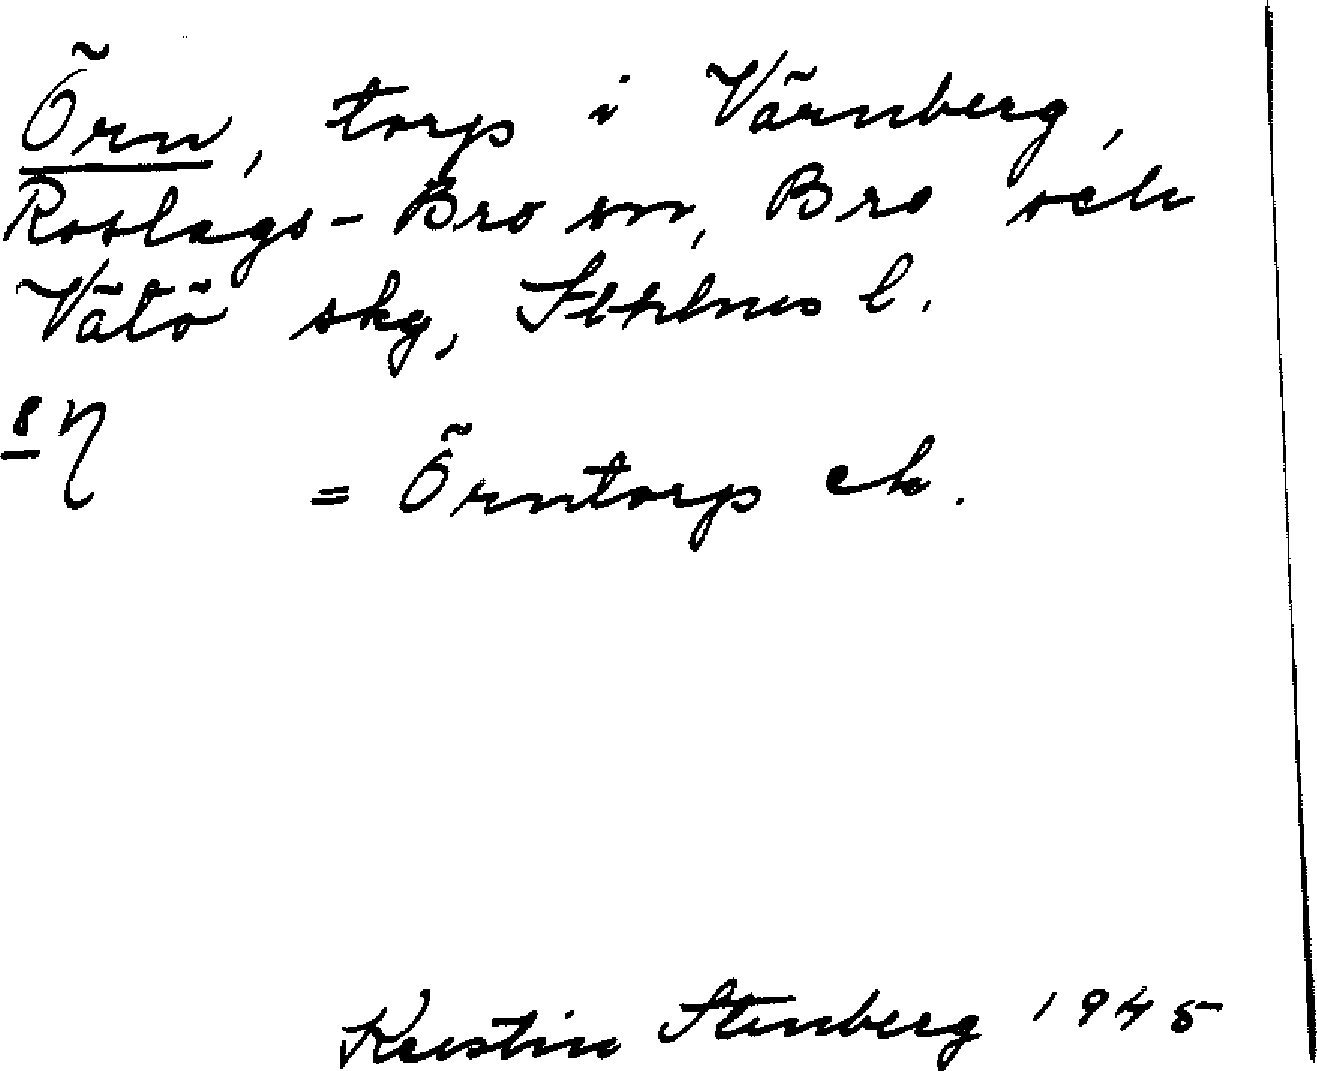 Örn, torp i Värnberg,
Roslags-Bro sn, Bro och
Vätö skg, Sthlms l.
= Örntorp ek.
Kerstin Stenberg 1945